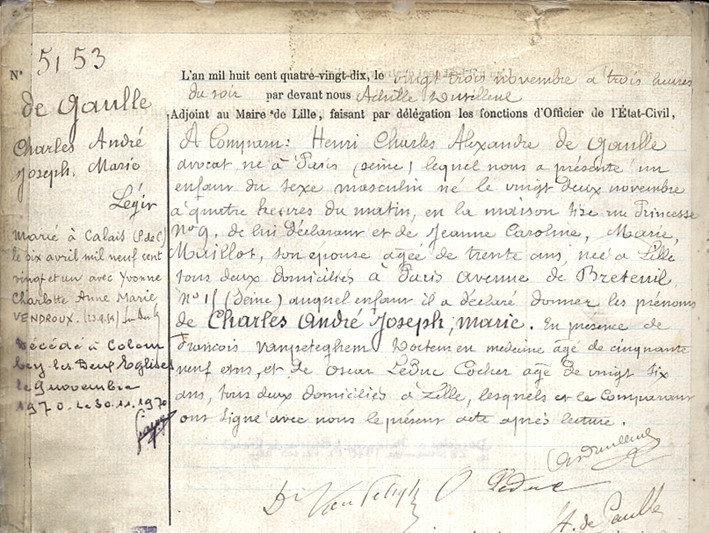 N° 5153
de Gaulle
Charles André
Joseph, Marie
Légit
Marié à Calais (P de C)
le six avril mil neuf cent
vingt et un avec Yvonne
Charlotte Anne Marie
VENDROUX.
Décédé à Colom
bey les Deux Eglises
le 9 novembre
1970. le 30.11.1970
L'an mil huit cent quatre-vingt-dix, le vingt trois novembre à trois heures
du soir par devant nous Achille
Adjoint au Maire de Lille, faisant par délégation les fonctions d'Officier de l'État-Civil,
A Comparu: Henri Charles Alexandre de Gaulle
avocat né à Paris (Seine) lequel nous a présenté un
enfant du sexe masculin né le vingt deux novembre
à quatre heures du matin, en la maison sise rue Princesse
N° 9, de lui déclarant et de Jeanne Caroline, Marie,
Maillot, son épouse âgée de trente ans, née à Lille
tous deux domiciliés à Paris avenue de Breteuil,
n° 15 (Seine) auquel enfant il a déclaré donner les prénoms
de Charles André Joseph, Marie. En présence de
François Vanpeteghem Docteur en médecine âgé de cinquante
neuf ans, et de Oscar Leduc Cocher âgé de vingt six
ans, tous deux domiciliés à Lille, lesquels et le Comparant
ont signé avec nous le présent acte après lecture.
O Leduc
H. de Gaulle